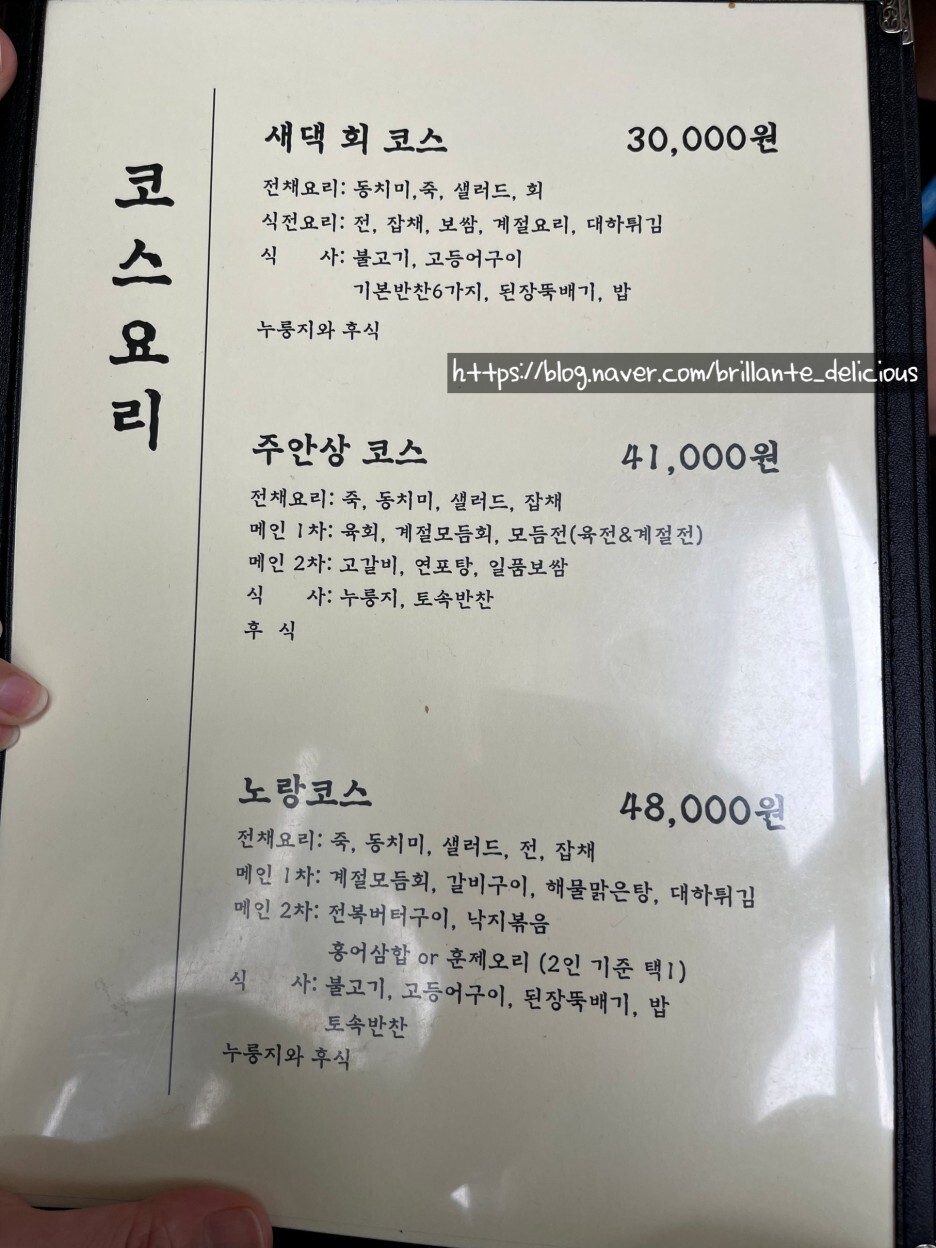 코스요리
새댁 회 코스 30,000원
전채요리: 동치미,죽, 샐러드, 회
식전요리: 전, 잡채, 보쌈, 계절요리, 대하튀김
식 사: 불고기, 고등어구이
기본반찬6가지, 된장뚝배기, 밥
누룽지와 후식
https://blog.naver.com/brillante_delicious
주안상 코스 41,000원
전채요리: 죽, 동치미, 샐러드, 잡채
메인 1차: 육회, 계절모듬회, 모듬전(육전&계절전)
메인 2차: 고갈비, 연포탕, 일품보쌈
식 사: 누룽지, 토속반찬
후 식
노랑코스 48,000원
전채요리: 죽, 동치미, 샐러드, 전, 잡채
메인 1차: 계절모듬회, 갈비구이, 해물맑은탕, 대하튀김
메인 2차: 전복버터구이, 낙지볶음
홍어삼합 or 훈제오리 (2인 기준 택1)
식 사: 불고기, 고등어구이, 된장뚝배기, 밥
토속반찬
누룽지와 후식